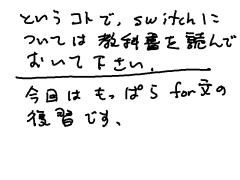 というコトで、switchに
ついては教科書を読んで
おいて下さい.
今回はもっぱらfor文の
復習です、